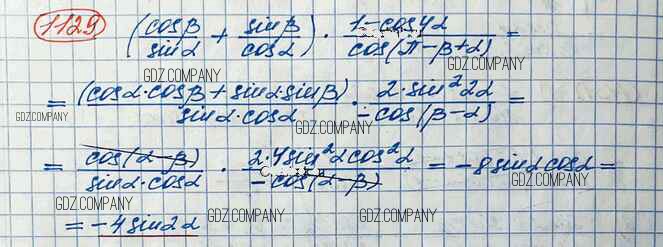 1129 (cosβ/sinα + sinβ/cosα) · (1-cos4α)/(cos(π-β+α)) =
GDZ.COMPANY GDZ.COMPANY
= (cosα·cosβ + sinα·sinβ)/(sinα·cosα) · (2·sin²2α)/(-cos(β-α)) =
GDZ.COMPANY GDZ.COMPANY GDZ.COMPANY
= cos(α-β)/(sinα·cosα) · (2·4sin²αcos²α)/(-cos(α-β)) = -8sinαcosα =
GDZ.COMPANY
= -4sin2α
GDZ.COMPANY GDZ.COMPANY GDZ.COMPANY